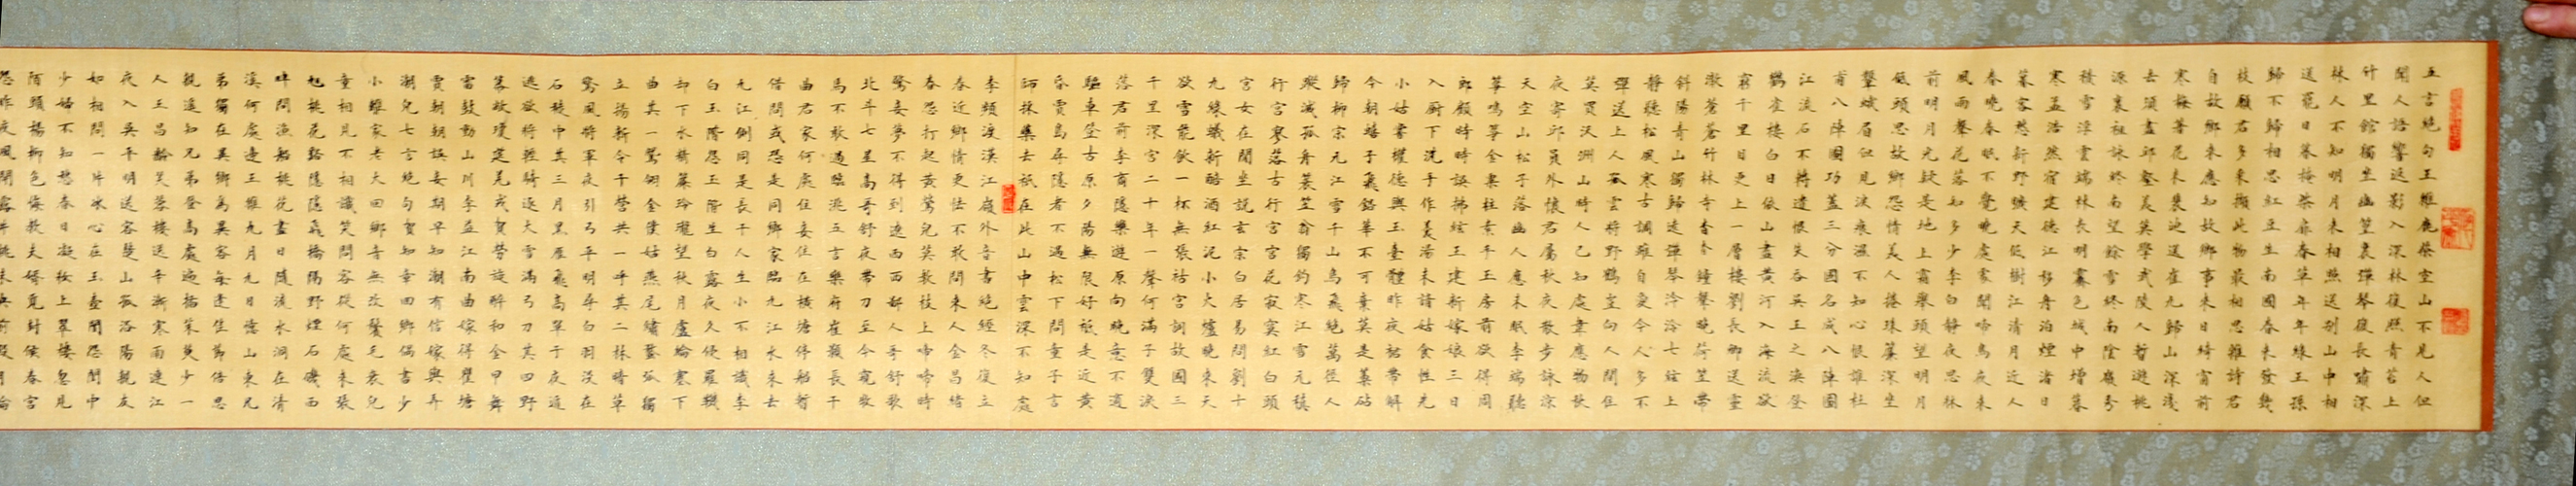 五言絕句王維鹿柴空山不見人但
聞人語響返影入深林復照青苔上
竹里館獨坐幽篁裏彈琴復長嘯深
林人不知明月來相照送別山中相
送罷日暮掩柴扉春草年年綠王孫
歸不歸相思紅豆生南國春來發幾
枝願君多采擷此物最相思雜詩君
自故鄉來應知故鄉事來日綺窗前
寒梅著花未裴迪送崔九歸山深淺
去須盡邱壑美莫學武陵人暫遊桃
源裏祖詠終南望餘雪終南陰嶺秀
積雪浮雲端林表明霽色城中增暮
寒孟浩然宿建德江移舟泊煙渚日
暮客愁新野曠天低樹江清月近人
春曉春眠不覺曉處處聞啼鳥夜來
風雨聲花落知多少李白靜夜思牀
前明月光疑是地上霜舉頭望明月
低頭思故鄉怨情美人捲珠簾深坐
顰蛾眉但見淚痕濕不知心恨誰杜
甫八陣圖功蓋三分國名成八陣圖
江流石不轉遺恨失吞吳王之渙登
鸛雀樓白日依山盡黃河入海流欲
窮千里目更上一層樓劉長卿送靈
澈蒼蒼竹林寺杳杳鐘聲晚荷笠帶
斜陽青山獨歸遠彈琴泠泠七絃上
靜聽松風寒古調雖自愛今人多不
彈送上人孤雲將野鶴豈向人間住
莫買沃洲山時人已知處韋應物秋
夜寄邱員外懷君屬秋夜散步詠涼
天空山松子落幽人應未眠李端聽
箏鳴箏金粟柱素手玉房前欲得周
郎顧時時誤拂絃王建新嫁娘三日
入廚下洗手作羹湯未諳姑食性先
小姑嘗權德輿玉臺體昨夜裙帶解
今朝蟢子飛鉛華不可棄莫是藁砧
歸柳宗元江雪千山鳥飛絕萬徑人
蹤滅孤舟蓑笠翁獨釣寒江雪元稹
行宮寥落古行宮宮花寂寞紅白頭
宮女在閒坐說玄宗白居易問劉十
九綠蟻新醅酒紅泥小火爐晚來天
欲雪能飲一杯無張祜宮詞故國三
千里深宮二十年一聲何滿子雙淚
落君前李商隱樂遊原向晚意不適
驅車登古原夕陽無限好祇是近黃
昏賈島尋隱者不遇松下問童子言
師採藥去祇在此山中雲深不知處
李頻渡漢江嶺外音書絕經冬復立
春近鄉情更怯不敢問來人金昌緒
春怨打起黃鶯兒莫教枝上啼啼時
驚妾夢不得到遼西西鄙人哥舒歌
北斗七星高哥舒夜帶刀至今窺牧
馬不敢過臨洮五言樂府崔顥長干
曲君家何處住妾住在橫塘停船暫
借問或恐是同鄉家臨九江水來去
九江側同是長干人生小不相識李
白玉階怨玉階生白露夜久侵羅襪
却下水精簾玲瓏望秋月盧綸塞下
曲其一鷲翎金僕姑燕尾繡蝥弧獨
立揚新令千營共一呼其二林暗草
驚風將軍夜引弓平明尋白羽沒在
石稜中其三月黑雁飛高單于夜遁
逃欲將輕騎逐大雪滿弓刀其四野
幕敞瓊筵羌戎賀勞旋醉和金甲舞
雷鼓動山川李益江南曲嫁得瞿塘
賈朝朝誤妾期早知潮有信嫁與弄
潮兒七言絕句賀知章回鄉偶書少
小離家老大回鄉音無改鬢毛衰兒
童相見不相識笑問客從何處來張
旭桃花谿隱隱飛橋隔野煙石磯西
畔問漁船桃花盡日隨流水洞在清
溪何處邊王維九月九日憶山東兄
弟獨在異鄉為異客每逢佳節倍思
親遙知兄弟登高處遍插茱萸少一
人王昌齡芙蓉樓送辛漸寒雨連江
夜入吳平明送客楚山孤洛陽親友
如相問一片冰心在玉壺閨怨閨中
少婦不知愁春日凝妝上翠樓忽見
陌頭楊柳色悔教夫婿覓封侯春宮
怨昨夜風開露井桃未央前殿月輪